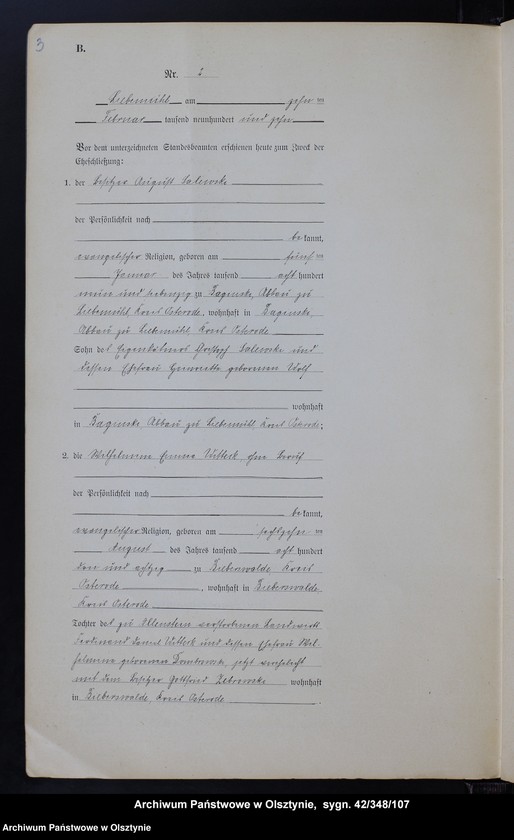 3
B.
Nr. 2
Liebemühl am zehn ten
Februar tausend neunhundert und zehn
Vor dem unterzeichneten Standesbeamten erschienen heute zum Zweck der
Eheschließung:
1. der Besitzer August Salewski
der Persönlichkeit nach
be kannt,
evangelischer Religion, geboren am fünf ten
Januar des Jahres tausend acht hundert
neun und siebenzig zu Bagensk, Abbau zu
Liebemühl, Kreis Osterode, wohnhaft in Bagensk,
Abbau zu Liebemühl, Kreis Osterode
Sohn des Eigenkätners Salewski und
dessen Ehefrau Henriette geborenen Wolf
wohnhaft
in Bagensk, Abbau zu Liebemühl, Kreis Osterode;
2. die Wilhelmine Emma Witteck, ohne Beruf
der Persönlichkeit nach
be kannt,
evangelischer Religion, geboren am sechszehn ten
August des Jahres tausend acht hundert
drei und achtzig zu Bieberswalde Kreis
Osterode, wohnhaft in Bieberswalde
Kreis Osterode
Tochter des zu Allenstein verstorbenen Landwirth
Ferdinand Daniel Witteck und dessen Ehefrau Wil-
helmine geborenen Dombrowski, jetzt verehelicht
mit dem Besitzer Gottfried Zebrowski wohnhaft
in Bieberswalde, Kreis Osterode.
Archiwum Państwowe w Olsztynie, sygn. 42/348/107
Archiwum Państwowe w Olsztynie